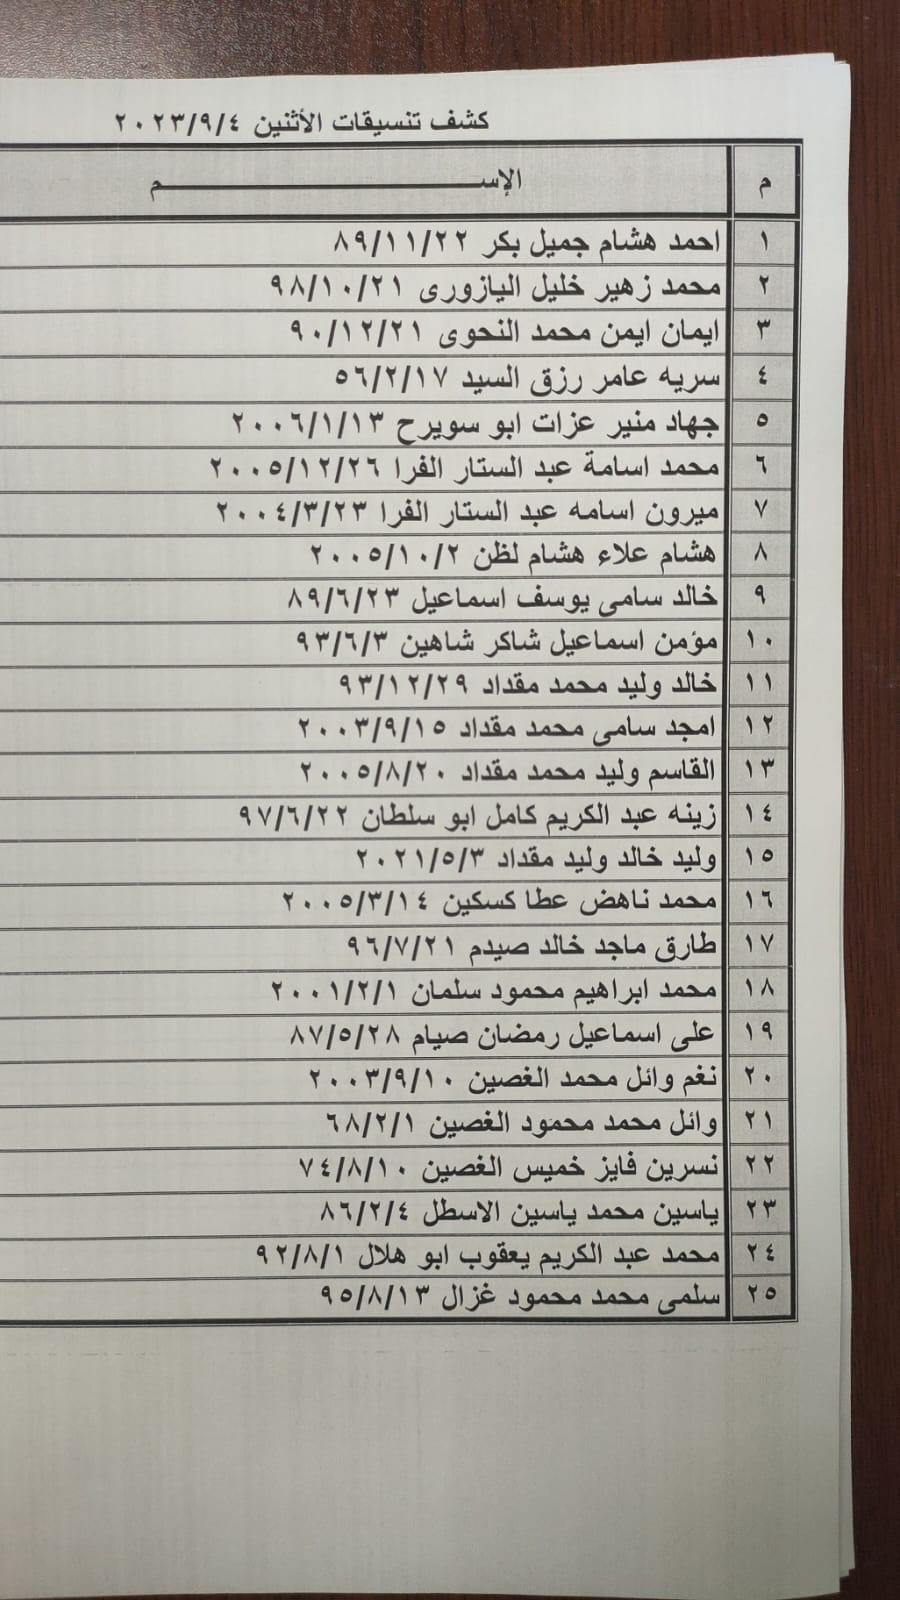 كشف تنسيقات الأثنين ٢٠٢٣/٩/٤
م الإســـــــــــم
١ احمد هشام جميل بكر ٨٩/١١/٢٢
٢ محمد زهير خليل اليازورى ٩٨/١٠/٢١
٣ ايمان ايمن محمد النحوى ٩٠/١٢/٢١
٤ سريه عامر رزق السيد ٥٦/٢/١٧
٥ جهاد منير عزات ابو سويرح ٢٠٠٦/١/١٣
٦ محمد اسامة عبد الستار الفرا ٢٠٠٥/١٢/٢٦
٧ ميرون اسامه عبد الستار الفرا ٢٠٠٤/٣/٢٣
٨ هشام علاء هشام لظن ٢٠٠٥/١٠/٢
٩ خالد سامى يوسف اسماعيل ٨٩/٦/٢٣
١٠ مؤمن اسماعيل شاكر شاهين ٩٣/٦/٣
١١ خالد وليد محمد مقداد ٩٣/١٢/٢٩
١٢ امجد سامى محمد مقداد ٢٠٠٣/٩/١٥
١٣ القاسم وليد محمد مقداد ٢٠٠٥/٨/٢٠
١٤ زينه عبد الكريم كامل ابو سلطان ٩٧/٦/٢٢
١٥ وليد خالد وليد مقداد ٢٠٢١/٥/٣
١٦ محمد ناهض عطا كسكين ٢٠٠٥/٣/١٤
١٧ طارق ماجد خالد صيدم ٩٦/٧/٢١
١٨ محمد ابراهيم محمود سلمان ٢٠٠١/٢/١
١٩ على اسماعيل رمضان صيام ٨٧/٥/٢٨
٢٠ نغم وائل محمد الغصين ٢٠٠٣/٩/١٠
٢١ وائل محمد محمود الغصين ٦٨/٢/١
٢٢ نسرين فايز خميس الغصين ٧٤/٨/١٠
٢٣ ياسين محمد ياسين الاسطل ٨٦/٢/٤
٢٤ محمد عبد الكريم يعقوب ابو هلال ٩٢/٨/١
٢٥ سلمى محمد محمود غزال ٩٥/٨/١٣